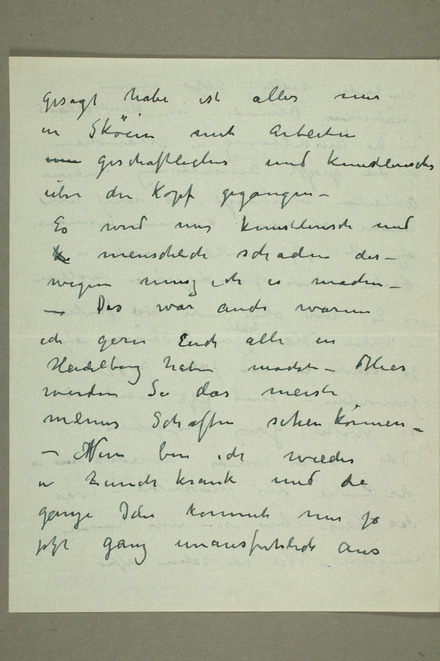 gesagt habe ist alles mir
in Skören mit Arbeiten
geschäftliches und künstlerisches
über den Kopf gegangen –
Es wird mir künstlerisch und
menschlich schaden des–
wegen muss ich es machen –
– Das war auch warum
ich gern Euch alle in
Heidelberg haben möchte – Hier
werden Sie das meiste
meines Schaffen sehen können –
– Nun bin ich wieder
in Zürich krank und die
ganze Idee kommt mir ja
jetzt ganz unausführlich aus